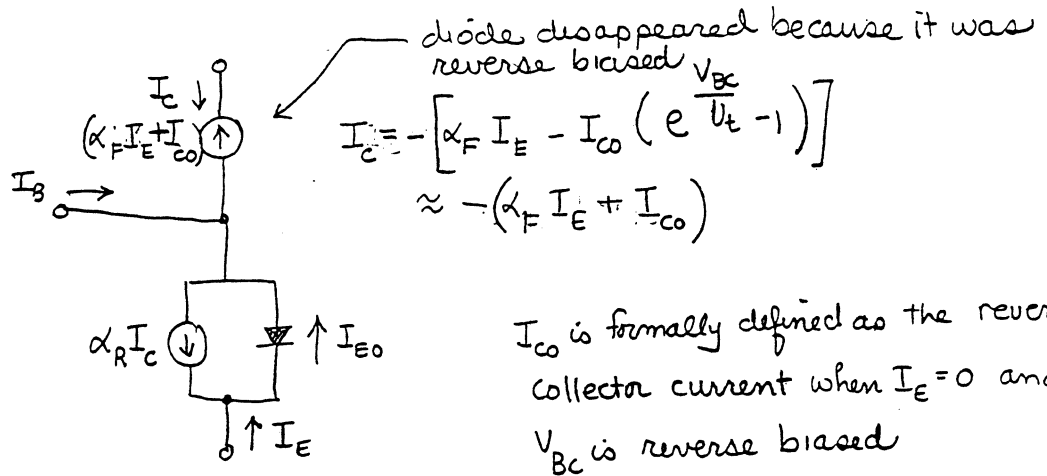 diode disappeared because it was
reverse biased
I_C ↓
(α_F I_E + I_CO) ↑
I_C = -[α_F I_E - I_CO (e^(V_BC/V_t) - 1)]
I_B →
≈ -(α_F I_E + I_CO)
α_R I_C ↓
↑ I_EO
↑ I_E
I_CO is formally defined as the rever
collector current when I_E = 0 an
V_BC is reverse biased